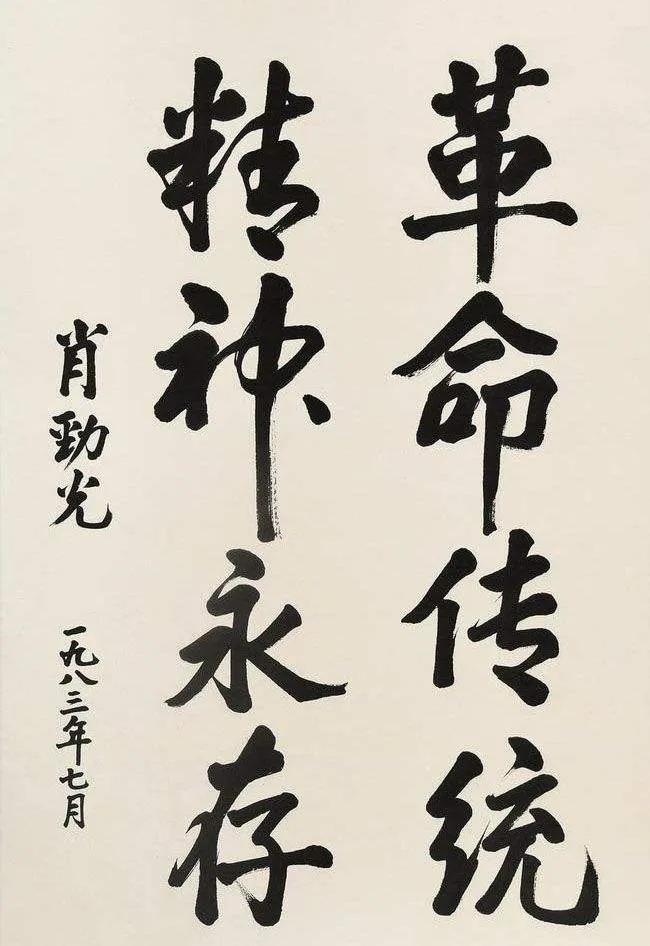 革命传统
精神永存
肖劲光
一九八三年七月